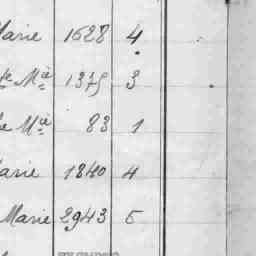 Marie 1628 4
Mie 1375 3
Mie 83 1
Marie 1840 4
Marie 2943 5